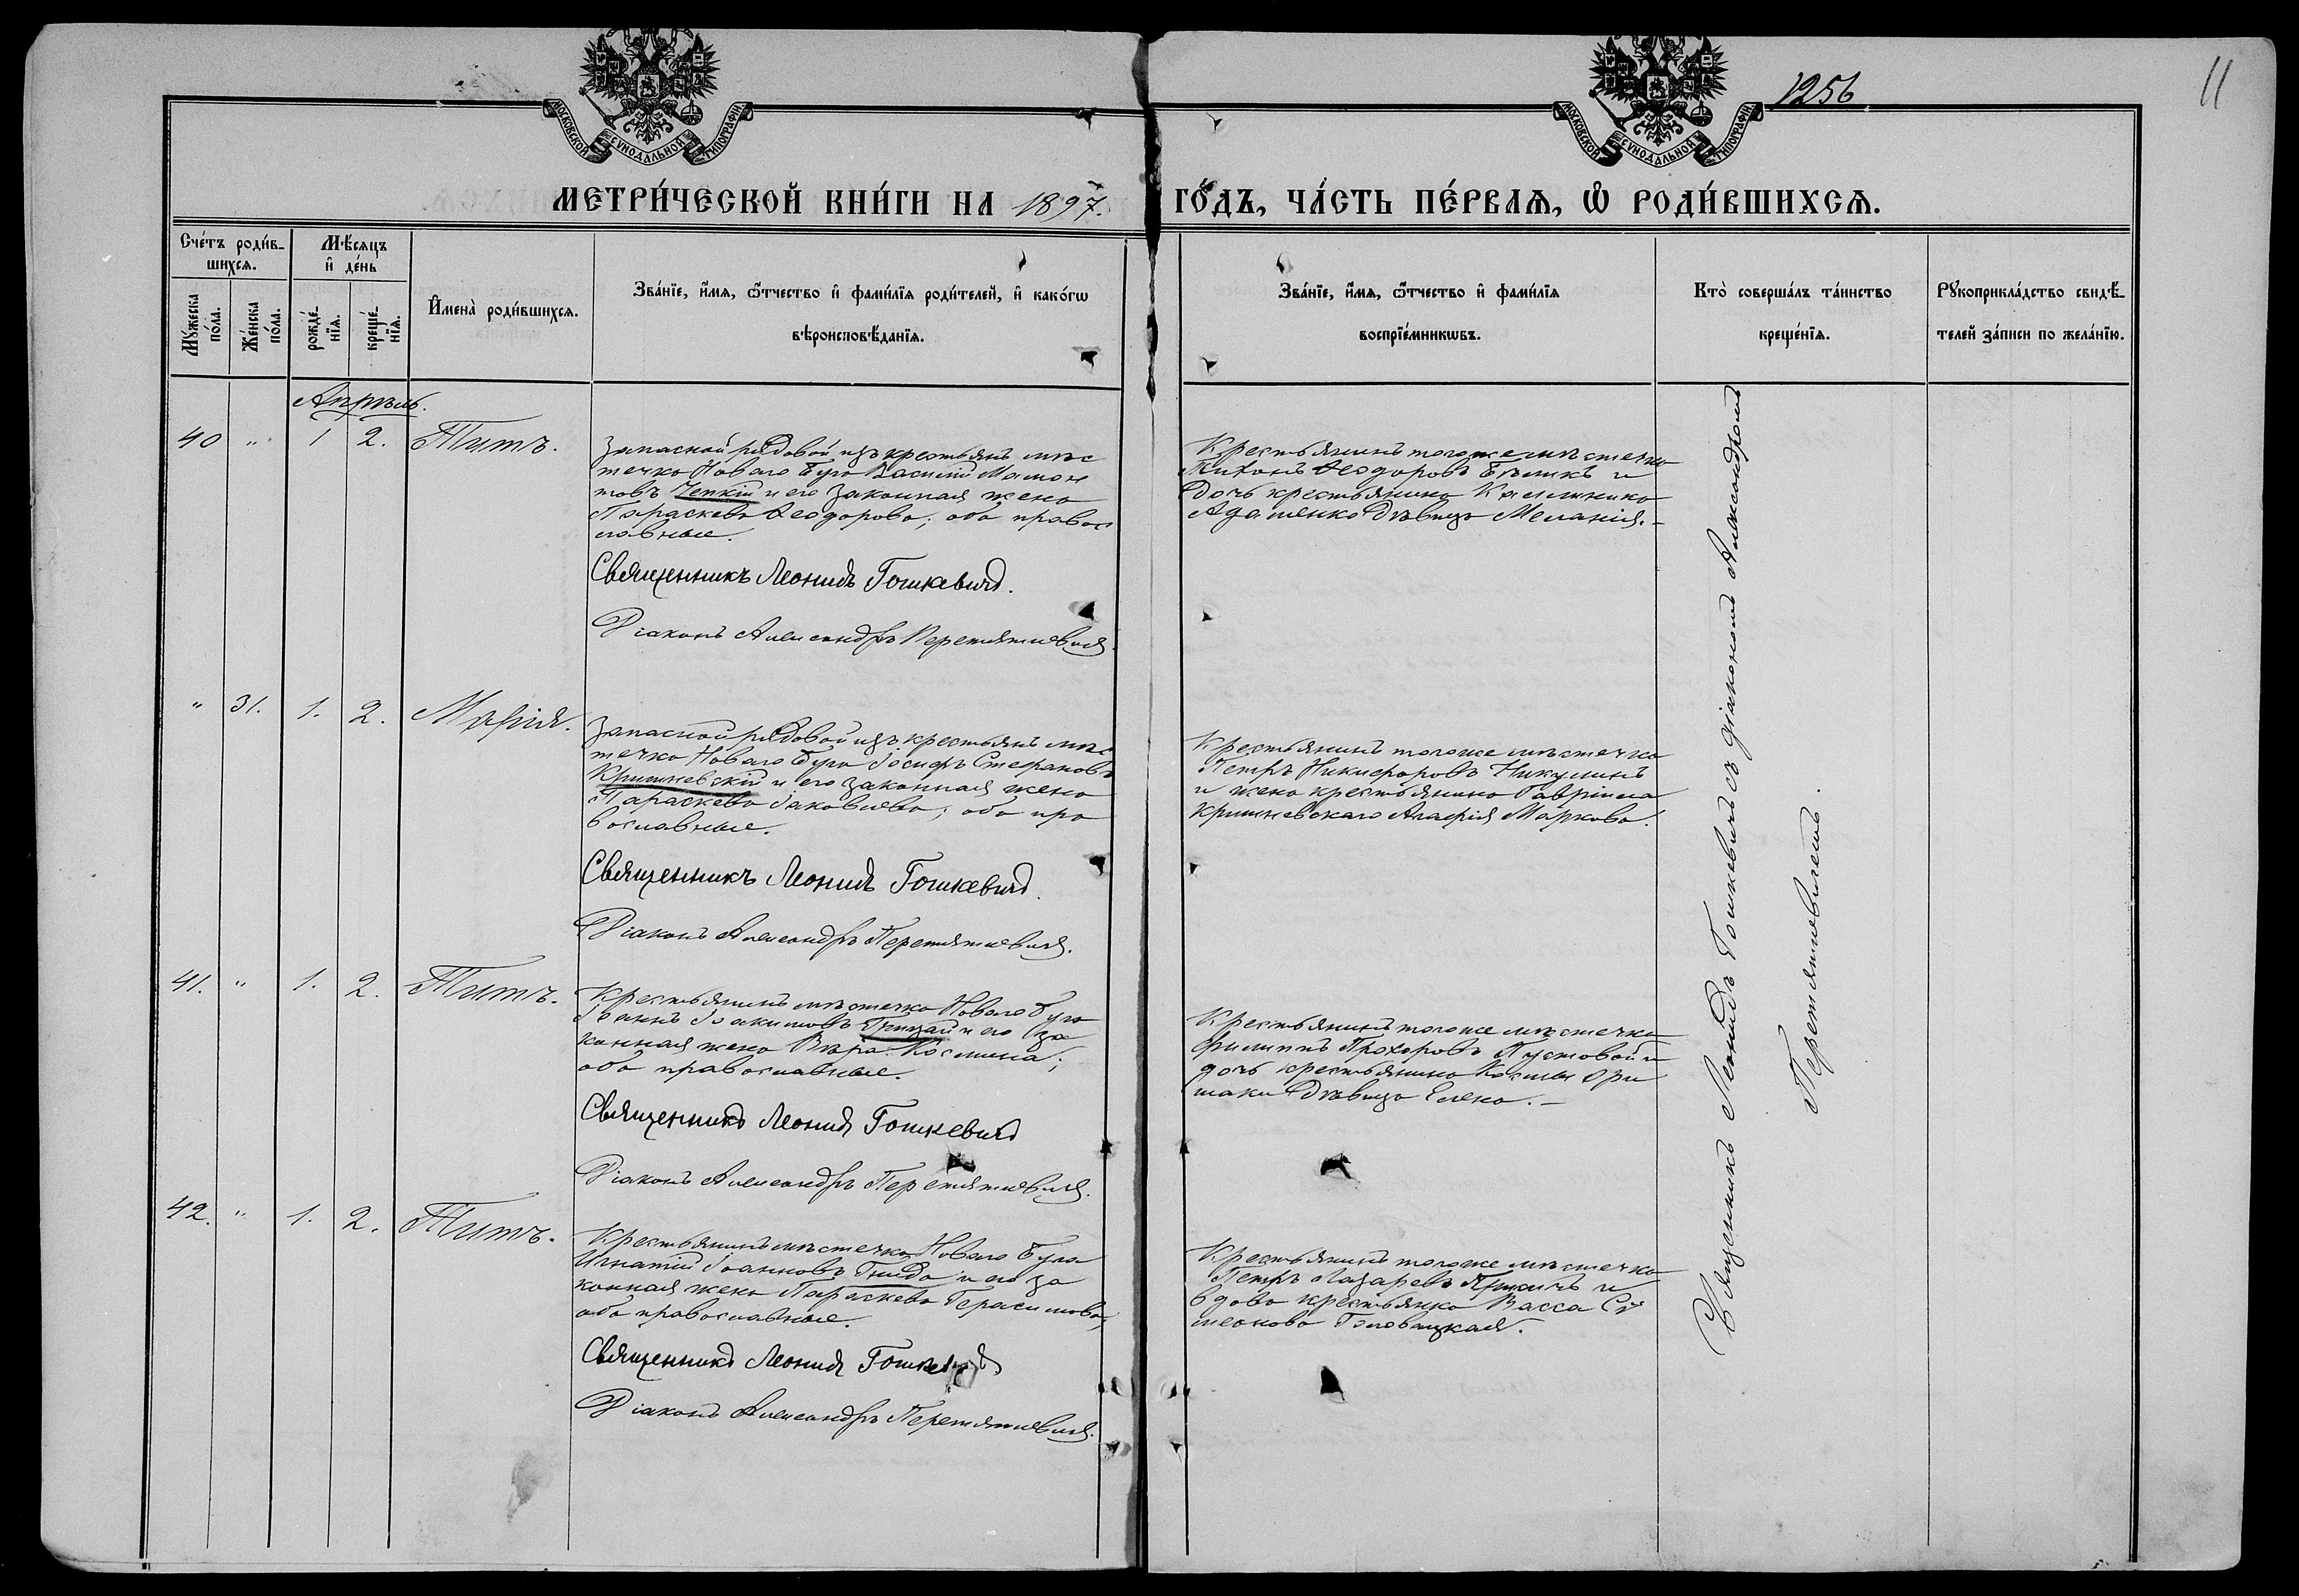 11
1256
МОСКОВСКОЙ СУНОДАЛЬНОЙ ТИПОГРАФІИ
МОСКОВСКОЙ СУНОДАЛЬНОЙ ТИПОГРАФІИ
МЕТРИ́ЧЕСКОЙ КНИ́ГИ НА 1897. ГО́ДЪ, ЧА́СТЬ ПЕ́РВАѦ, Ѡ҆ РОДИ́ВШИХСѦ.
Сче́тъ роди́в-
шихсѧ.
Мꙋ́жеска
по́ла.
Же́нска
по́ла.
Мѣ́сѧцъ
и҆ де́нь
рожде́-
нїѧ.
креще́-
нїѧ.
И҆мена̀ роди́вшихсѧ.
Зва́нїе, и҆́мѧ, ѻ҆́тчество и҆ фами́лїѧ роди́телей, и҆ како́гѡ
вѣроисповѣ́данїѧ.
Зва́нїе, и҆́мѧ, ѻ҆́тчество и҆ фами́лїѧ
воспрїе́мникѡвъ.
Кто̀ соверша́лъ та́инство
креще́нїѧ.
Рꙋкоприкла́дство свидѣ́-
телей за́писи по жела́нїю.
Апрѣль.
40 " 1 2. Титъ.
Запасной рядовой изъ крестьянъ мѣс
течка Новаго Буга Василій Мамон
товъ Чепкій и его законная жена
Параскева Ѳеодорова; оба правос
лавные.
Священникъ Леонидъ Гошкевичъ.
Діаконъ Александръ Перетятковичъ.
Крестьянинъ тогоже мѣстечка
Тихонъ Ѳеодоровъ и
дочь крестьянина Каллиника
Адаменко дѣвица Меланія.-
" 31. 1. 2. Марія.
Запасной рядовой изъ крестьянъ мѣс
течка Новаго Буга Іосифъ Стефановъ
Кришневскій и его законная жена
Параскева Іаковлева; оба пра
вославные.
Священникъ Леонидъ Гошкевичъ.
Діаконъ Александръ Перетятковичъ.
Крестьянинъ тогоже мѣстечка
Петръ Никифоровъ Никулинъ
и жена крестьянина Гавріила
Кришневскаго Агафія Маркова.
41. " 1. 2. Титъ.
Крестьянинъ мѣстечка Новаго Буга
Іоаннъ Іоакимовъ Грицай и его за
конная жена Вѣра Космина;
оба православные.
Священникъ Леонидъ Гошкевичъ
Діаконъ Александръ Перетятковичъ.
Крестьянинъ тогоже мѣстечка
Филиппъ Прохоровъ Пустовой и
дочь крестьянина Космы
дѣвица Елена.-
42. " 1. 2. Титъ.
Крестьянинъ мѣстечка Новаго Буга
Игнатій Іоанновъ Гнида и его за
конная жена Параскева Герасимова;
оба православные.
Священникъ Леонидъ Гошкевичъ
Діаконъ Александръ Перетятковичъ.
Крестьянинъ тогоже мѣстечка
Петръ Лазаревъ и
вдова крестьянка Васса Си
меонова Головацкая.
Священникъ Леонидъ Гошкевичъ съ діакономъ Александромъ
Перетятковичемъ.